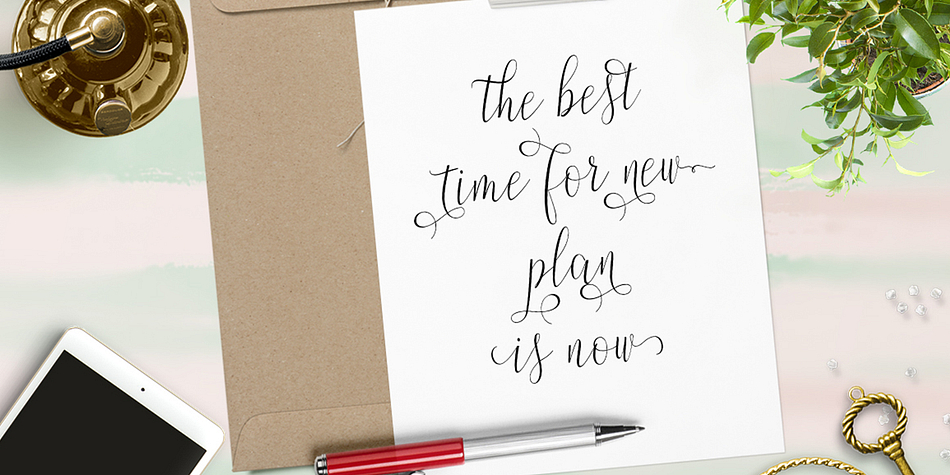 the best
time for new
plan
is now